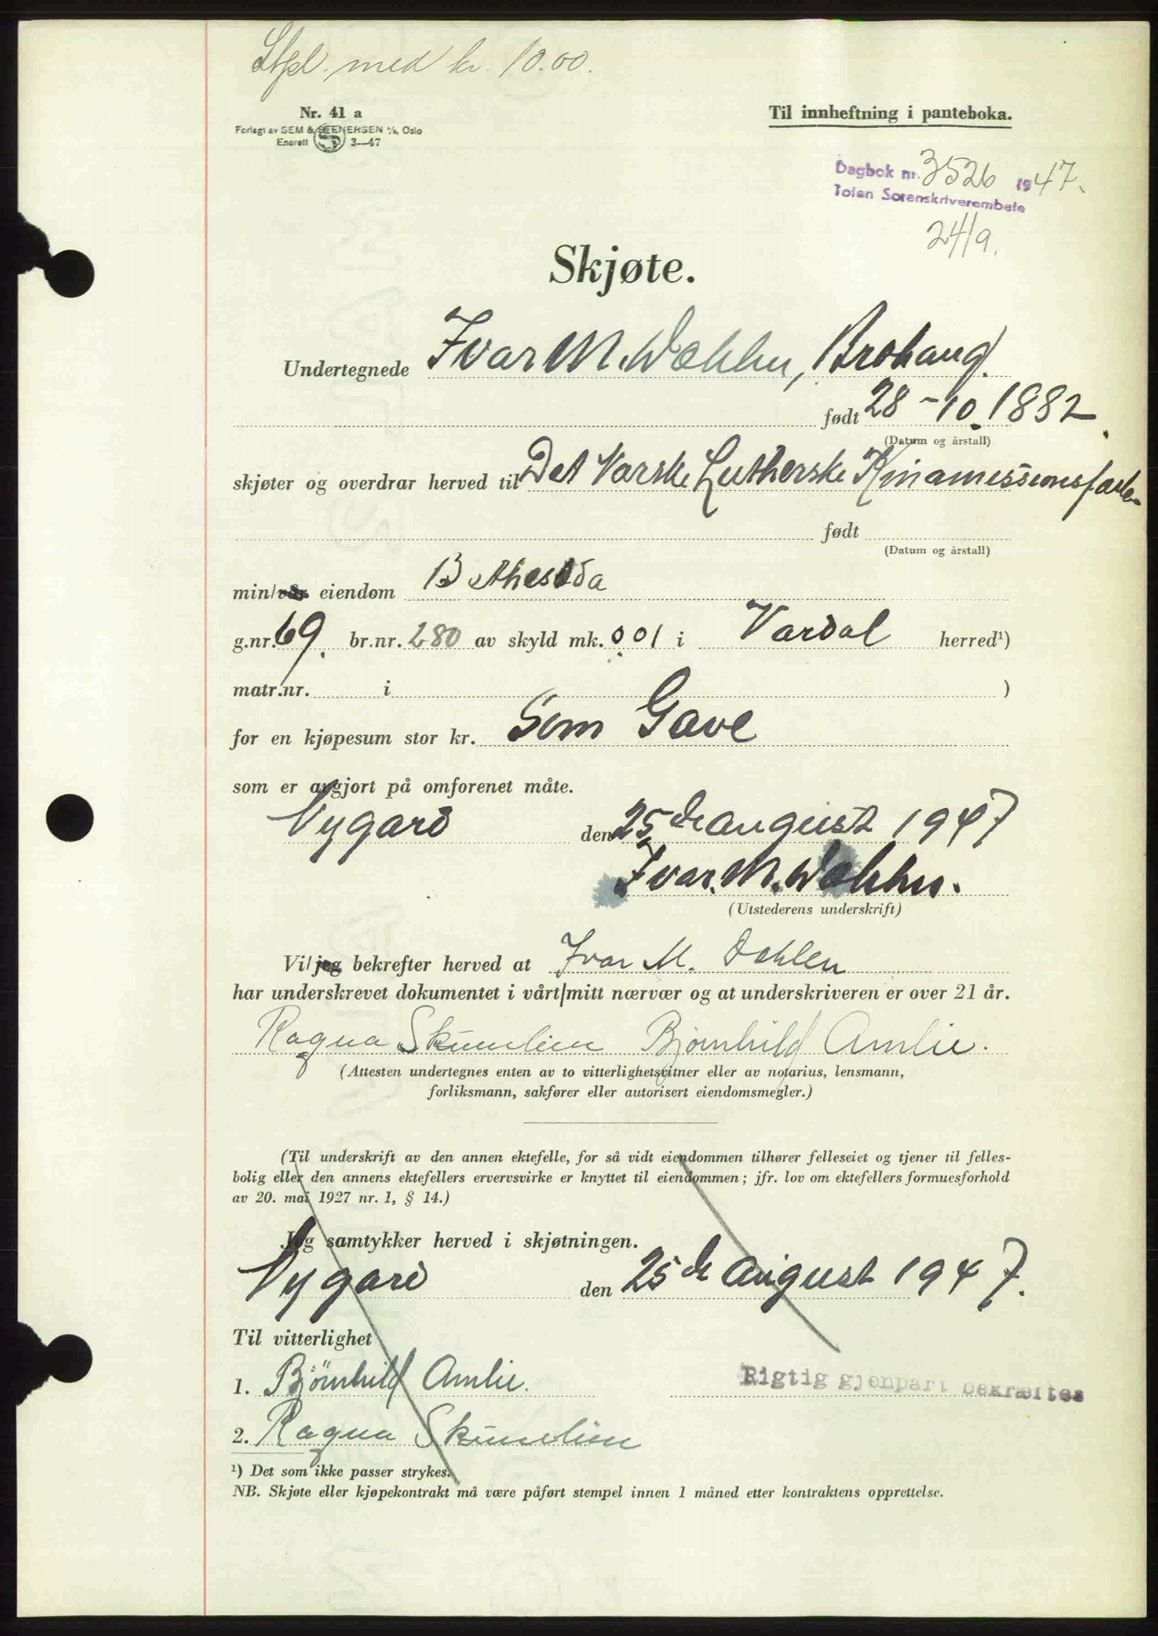 Stpl. med kr. 10.00.
Nr. 41 a
Forlagt av SEM & STENERSEN A/S, Oslo
Enerett 3—47
Til innheftning i panteboka.
Dagbok nr. 3526 1947.
Toten Sorenskriverembete
24/9.
Skjøte.
Undertegnede Ivar M. Dæhlen, Brohaug.
født 28-10.1882.
(Datum og årstall)
skjøter og overdrar herved til Det Norske Lutherske Kinamissionsforb.
født
(Datum og årstall)
min/vår eiendom Bethesda
g.nr. 69. br.nr. 280 av skyld mk. 0.01 i Vardal herred¹)
matr.nr. i )
for en kjøpesum stor kr. Som Gave
som er avgjort på omforenet måte.
Nygard den 25de august 1947
Ivar. M. Dæhlen.
(Utstederens underskrift)
Vi/jeg bekrefter herved at Ivar M. Dæhlen
har underskrevet dokumentet i vårt/mitt nærvær og at underskriveren er over 21 år.
Ragna Skumlien Bjørnhild Amlie.
(Attesten undertegnes enten av to vitterlighetsvitner eller av notarius, lensmann,
forliksmann, sakfører eller autorisert eiendomsmegler.)
(Til underskrift av den annen ektefelle, for så vidt eiendommen tilhører felleseiet og tjener til felles-
bolig eller den annens ektefellers ervervsvirke er knyttet til eiendommen; jfr. lov om ektefellers formuesforhold
av 20. mai 1927 nr. 1, § 14.)
Jeg samtykker herved i skjøtningen.
Nygard den 25de August 1947.
Til vitterlighet
1. Bjørnhild Amlie.
Rigtig gjenpart bekræftes
2. Ragna Skumlien
¹) Det som ikke passer strykes.
NB. Skjøte eller kjøpekontrakt må være påført stempel innen 1 måned etter kontraktens opprettelse.